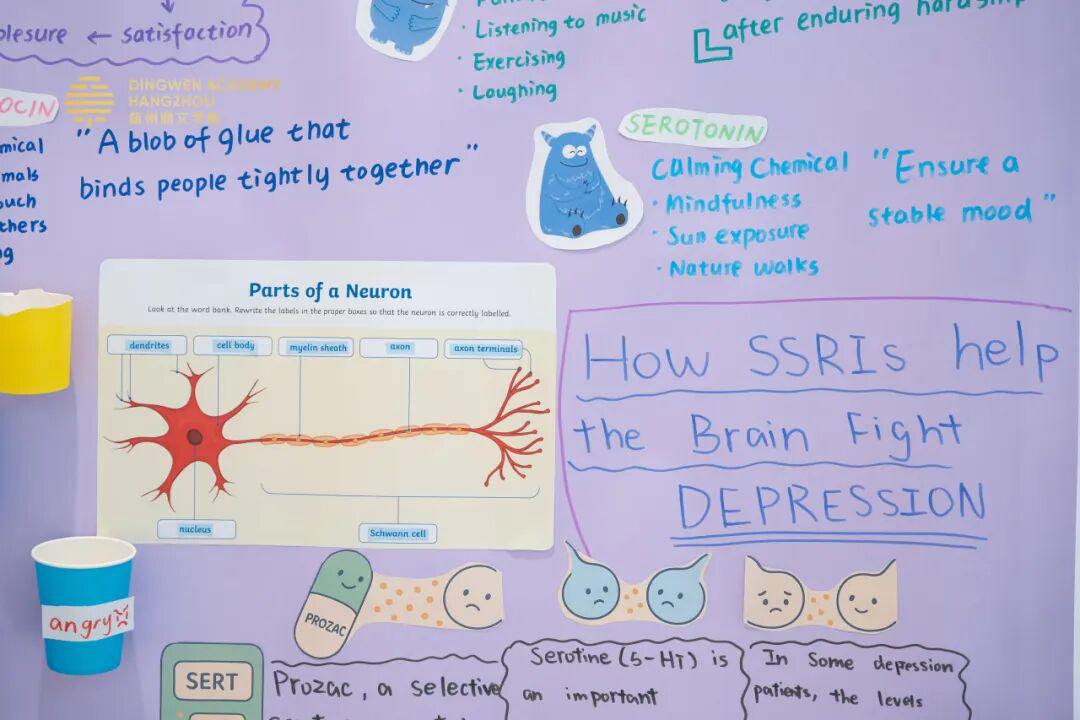 plesure ← satisfaction
Listening to music
Exercising
Laughing
after enduring hardship
DINGWEN ACADEMY
HANGZHOU
OCIN
mical
mals
ouch
thers
g
"A blob of glue that
binds people tightly together"
SEROTONIN
Calming Chemical
· Mindfulness
· Sun exposure
· Nature walks
"Ensure a
stable mood"
Parts of a Neuron
Look at the word bank. Rewrite the labels in the proper boxes so that the neuron is correctly labelled.
dendrites
cell body
myelin sheath
axon
axon terminals
nucleus
Schwann cell
How SSRIs help
the Brain Fight
DEPRESSION
angry
PROZAC
SERT
Prozac, a selective
Serotine (5-HT) is
an important
In Some depression
patients, the levels